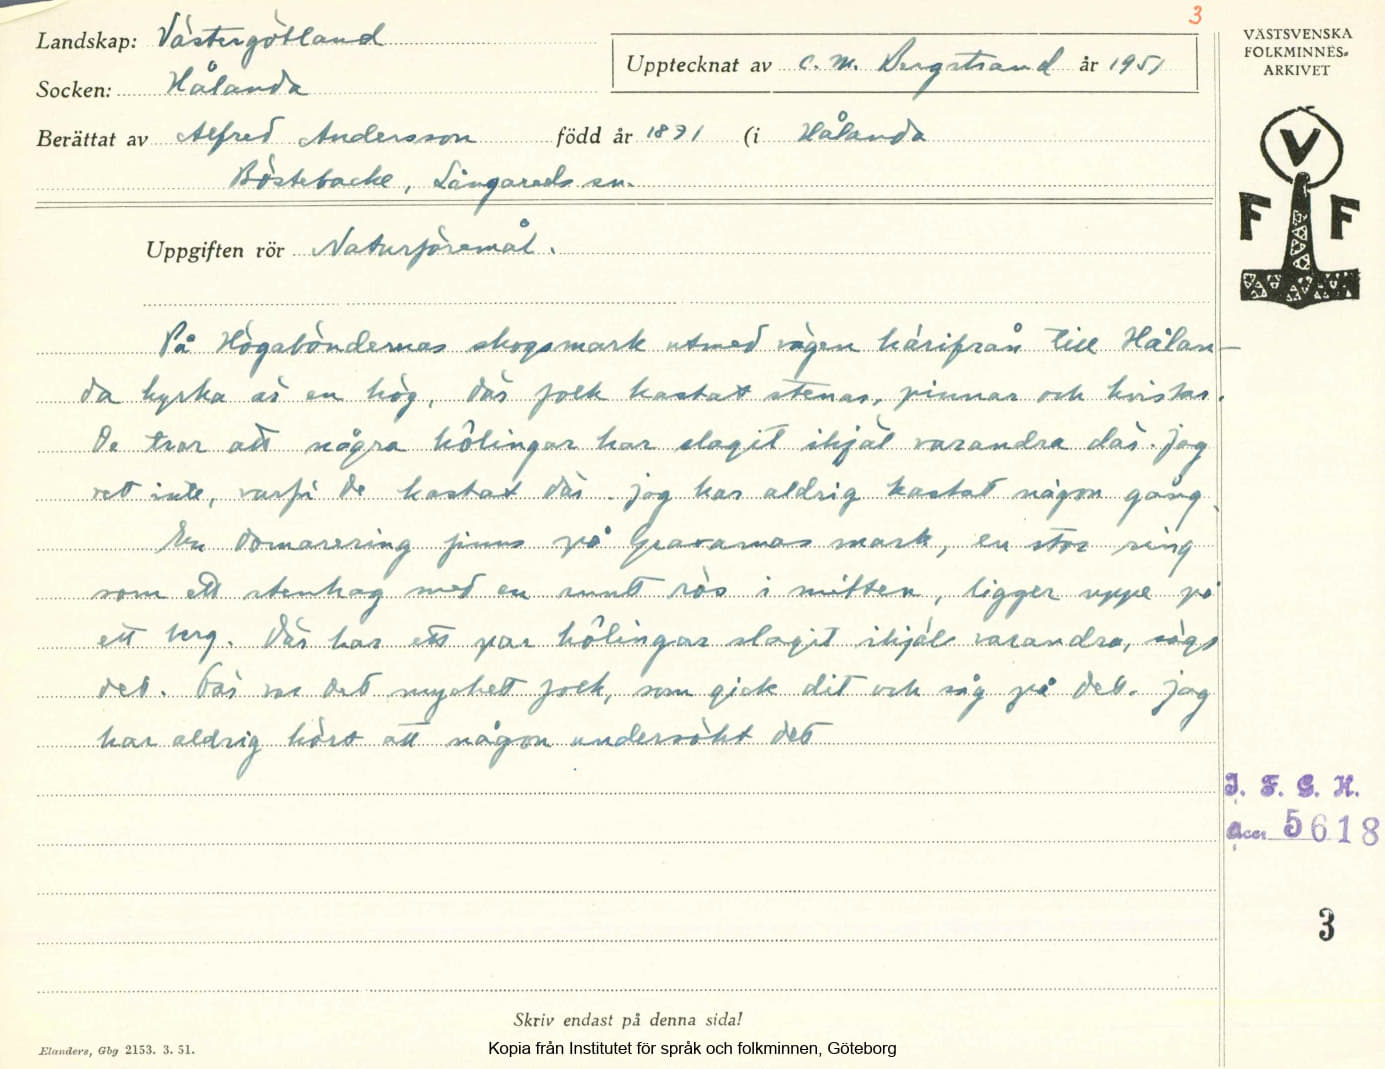 3
Landskap: Västergötland
Upptecknat av C. M. Bergstrand år 1951
Socken: Hålanda
Berättat av Alfred Andersson född år 1871 (i Hålanda
Böstebacke, Långareds sn.
Uppgiften rör Naturföremål.
På Högaböndernas skogsmark utmed vägen härifrån till Hålan-
da kyrka är en hög, där folk kastat stenar, pinnar och kvistar.
De tror att några kôlingar har slagit ihjäl varandra där. Jag
vet inte, varför de kastat där. Jag har aldrig kastat någon gång.
En domarering finns på Gravarnas mark, en stor ring
som ett stenhag med en runt rös i mitten, ligger uppe på
ett berg. Där har ett par kôlingar slagit ihjäl varandra, sägs
det. Där var det mycket folk, som gick dit och såg på det. Jag
har aldrig hört att någon undersökt det
Skriv endast på denna sida!
Elanders, Gbg 2153. 3. 51.
Kopia från Institutet för språk och folkminnen, Göteborg
VÄSTSVENSKA
FOLKMINNES-
ARKIVET
V
F F
I. F. G. H.
Acc. 5618
3